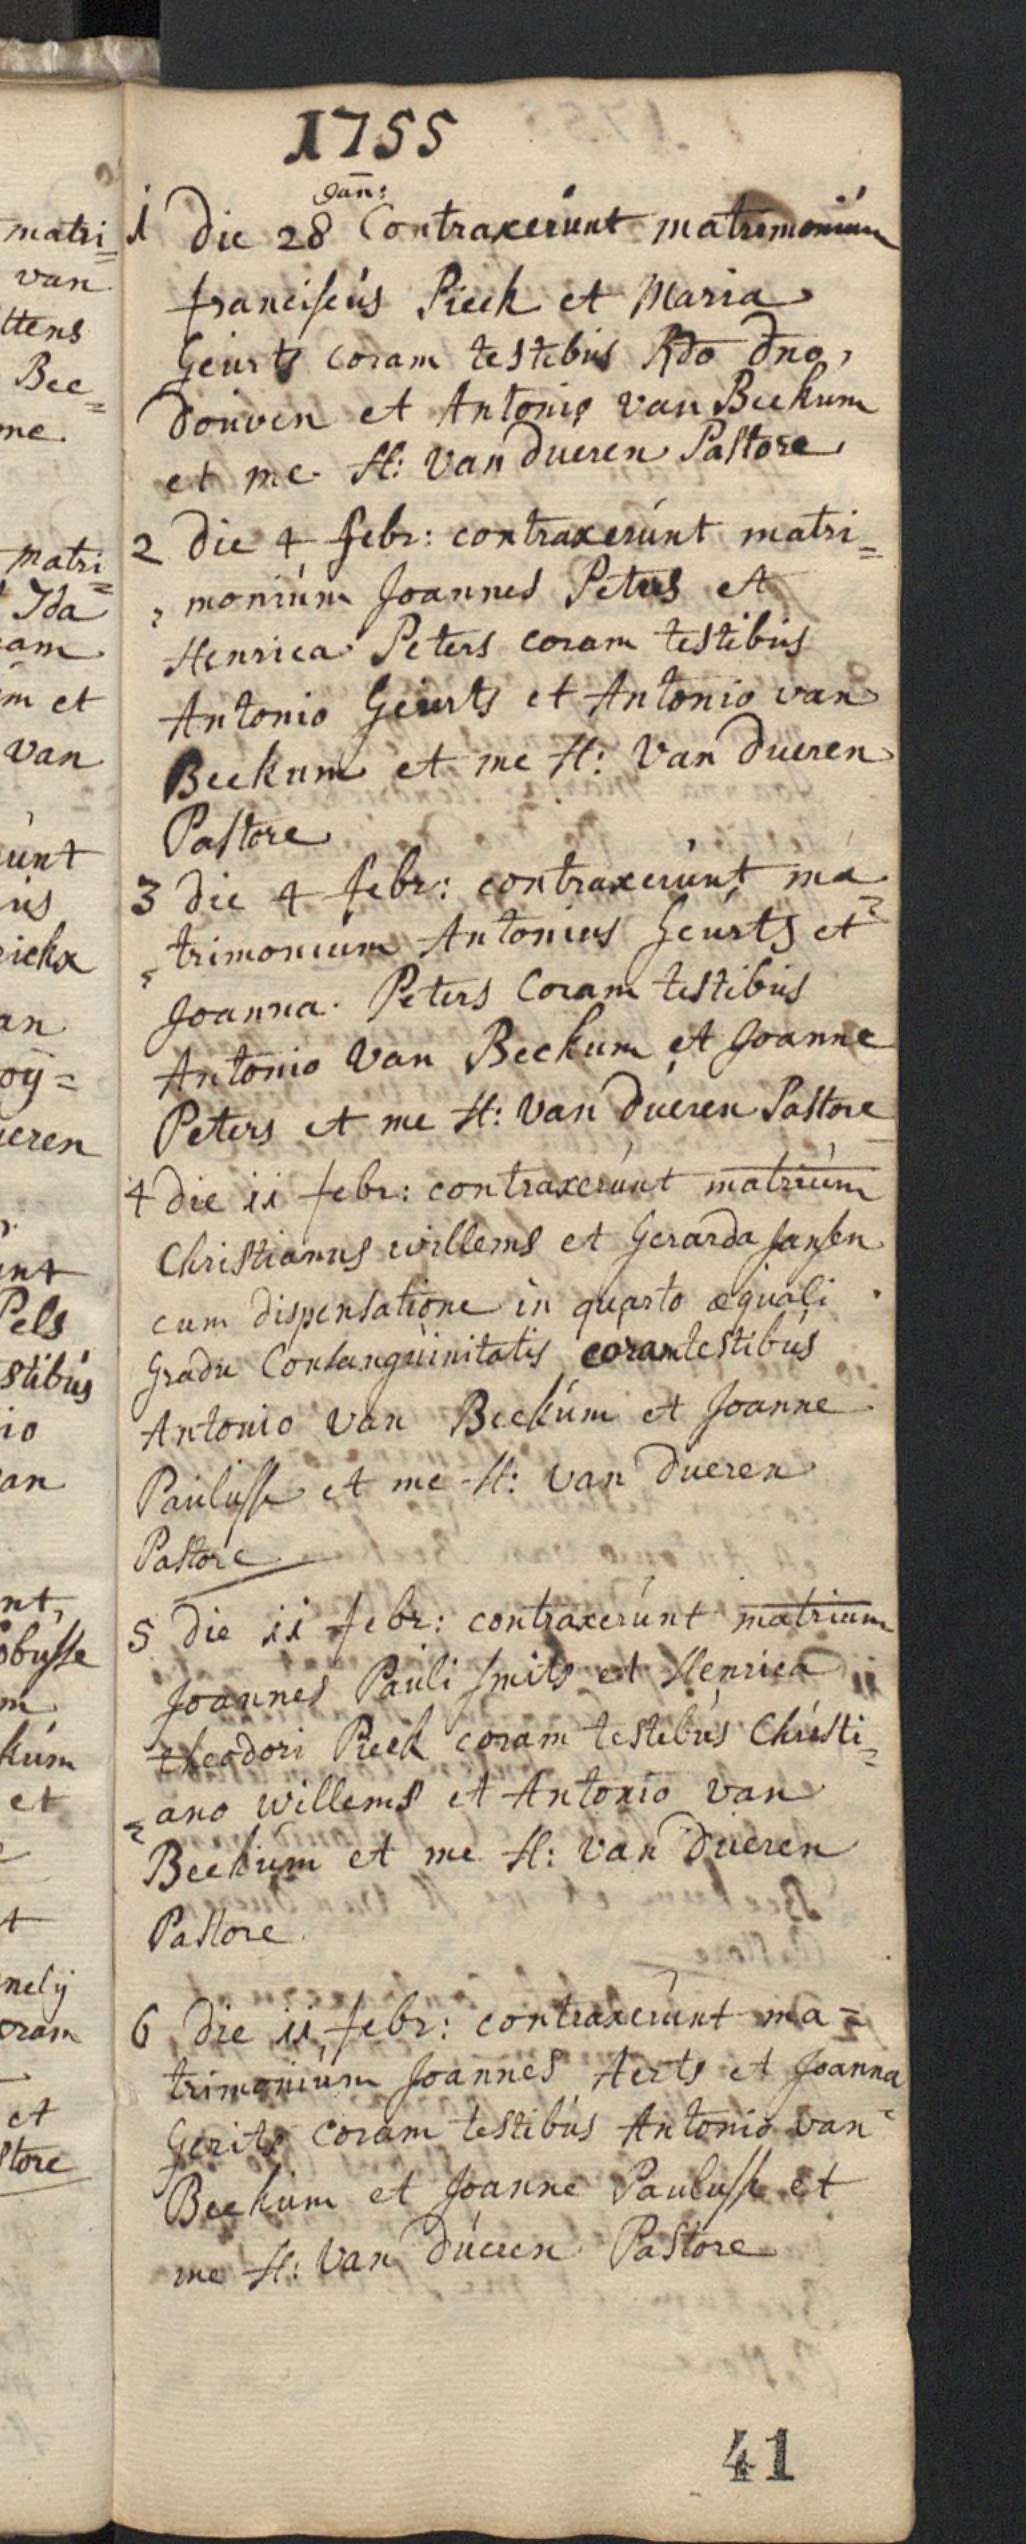 1755
Jan:
1 die 28 Contraxerunt matrimonium
franciscus Pieck et Maria
Geurts coram testibus Rdo dno,
Douven et Antonio van Beekum
et me H: Van dueren Pastore
2 die 4 febr: contraxerunt matri=
monium Joannes Peters et
Henrica Peters coram testibus
Antonio Geurts et Antonio van
Beekum et me H: Van dueren
Pastore
3 die 4 febr: contraxerunt ma=
trimonium Antonius Geurts et
Joanna Peters Coram testibus
Antonio Van Beekum et Joanne
Peters et me H: Van dueren Pastore
4 die 11 febr: contraxerunt matrium
Christianus willems et Gerarda Jansen
cum dispensatione in quarto æquali
Gradu Consanguinitatis coram testibus
Antonio Van Beekum et Joanne
Paulusse et me H: van dueren
Pastore
5 die 11 febr: contraxerunt matrium
Joannes Pauli Smits et Henrica
theodori Pieck coram testibus Christi=
ano willems et Antonio van
Beekum et me H: Van dueren
Pastore
6 die 11 febr: contraxerunt ma=
trimonium Joannes Aerts et Joanna
Gerits coram testibus Antonio van
Beekum et Joanne Paulusse et
me H: Van dueren Pastore
41
matri=
van
ttens
Bee=
me
matri=
Ida
ram
m et
van
unt
us
rickx
an
oij=
ueren
unt
Pels
stibus
io
an
nt,
obusse
m
kum
et
t
nelij
oram
et
store